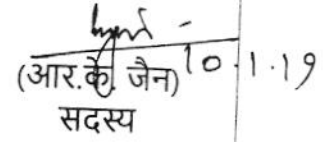 (आर.के. जैन) 10.1.19
सदस्य